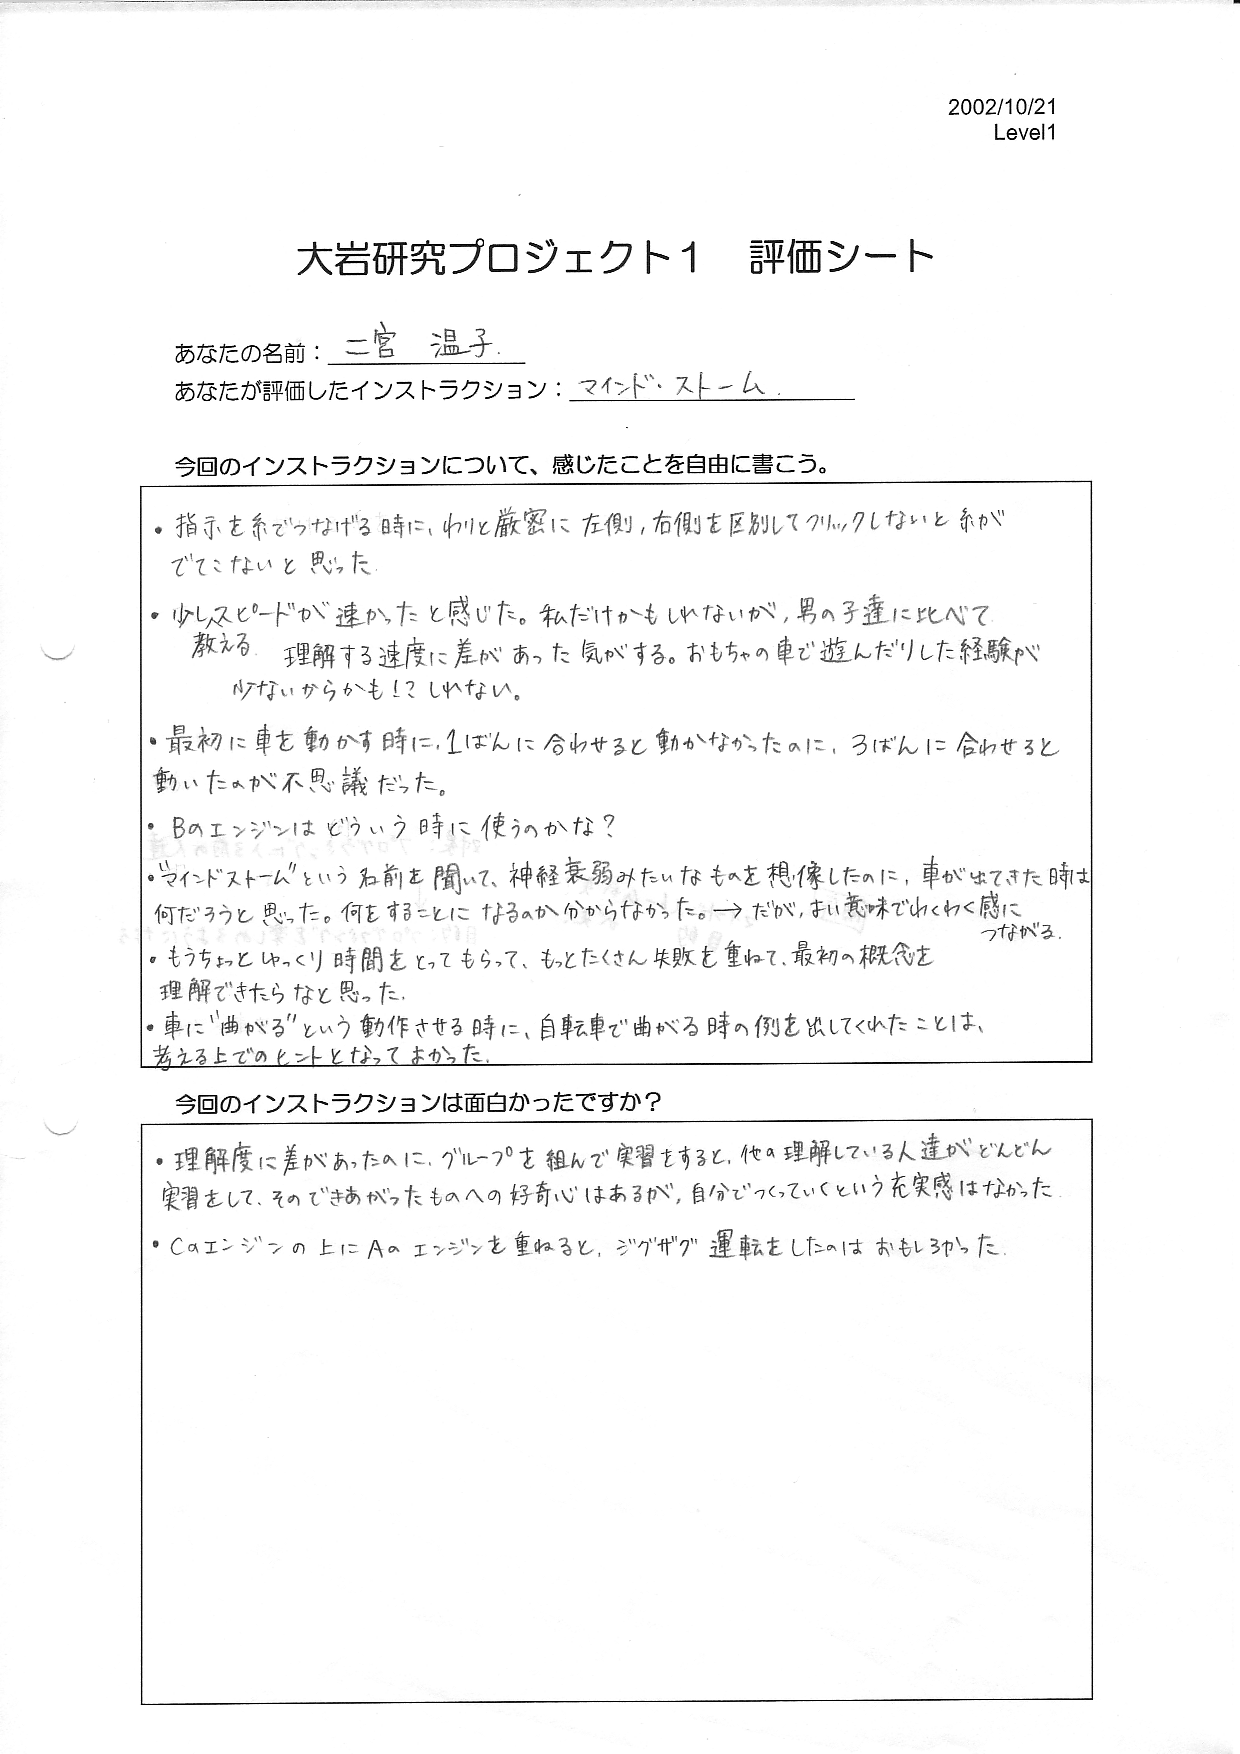 2002/10/21
Level1
大岩研究プロジェクト1　評価シート
あなたの名前：二宮　温子.
あなたが評価したインストラクション：マインド・ストーム.
今回のインストラクションについて、感じたことを自由に書こう。
・指示を糸でつなげる時に、わりと厳密に左側，右側を区別してクリックしないと糸が
でてこないと思った.
・少しスピードが速かったと感じた。私だけかもしれないが，男の子達に比べて
教える　理解する速度に差があった気がする。おもちゃの車で遊んだりした経験が
少ないからかも!?しれない。
・最初に車を動かす時に、1ばんに合わせると動かなかったのに，3ばんに合わせると
動いたのが不思議だった。
・Bのエンジンはどういう時に使うのかな？
・"マインドストーム"という名前を聞いて、神経衰弱みたいなものを想像したのに，車が出てきた時は
何だろうと思った。何をすることになるのか分からなかった。→だが，よい意味でわくわく感に
つながる.
・もうちょっとゆっくり時間をとってもらって、もっとたくさん失敗を重ねて、最初の概念を
理解できたらなと思った.
・車に"曲がる"という動作させる時に、自転車で曲がる時の例を出してくれたことは、
考える上でのヒントとなってよかった.
今回のインストラクションは面白かったですか？
・理解度に差があったのに，グループを組んで実習をすると，他の理解している人達がどんどん
実習をして、そのできあがったものへの好奇心はあるが，自分でつくっていくという充実感はなかった.
・Cのエンジンの上にAのエンジンを重ねると，ジグザグ運転をしたのはおもしろかった.